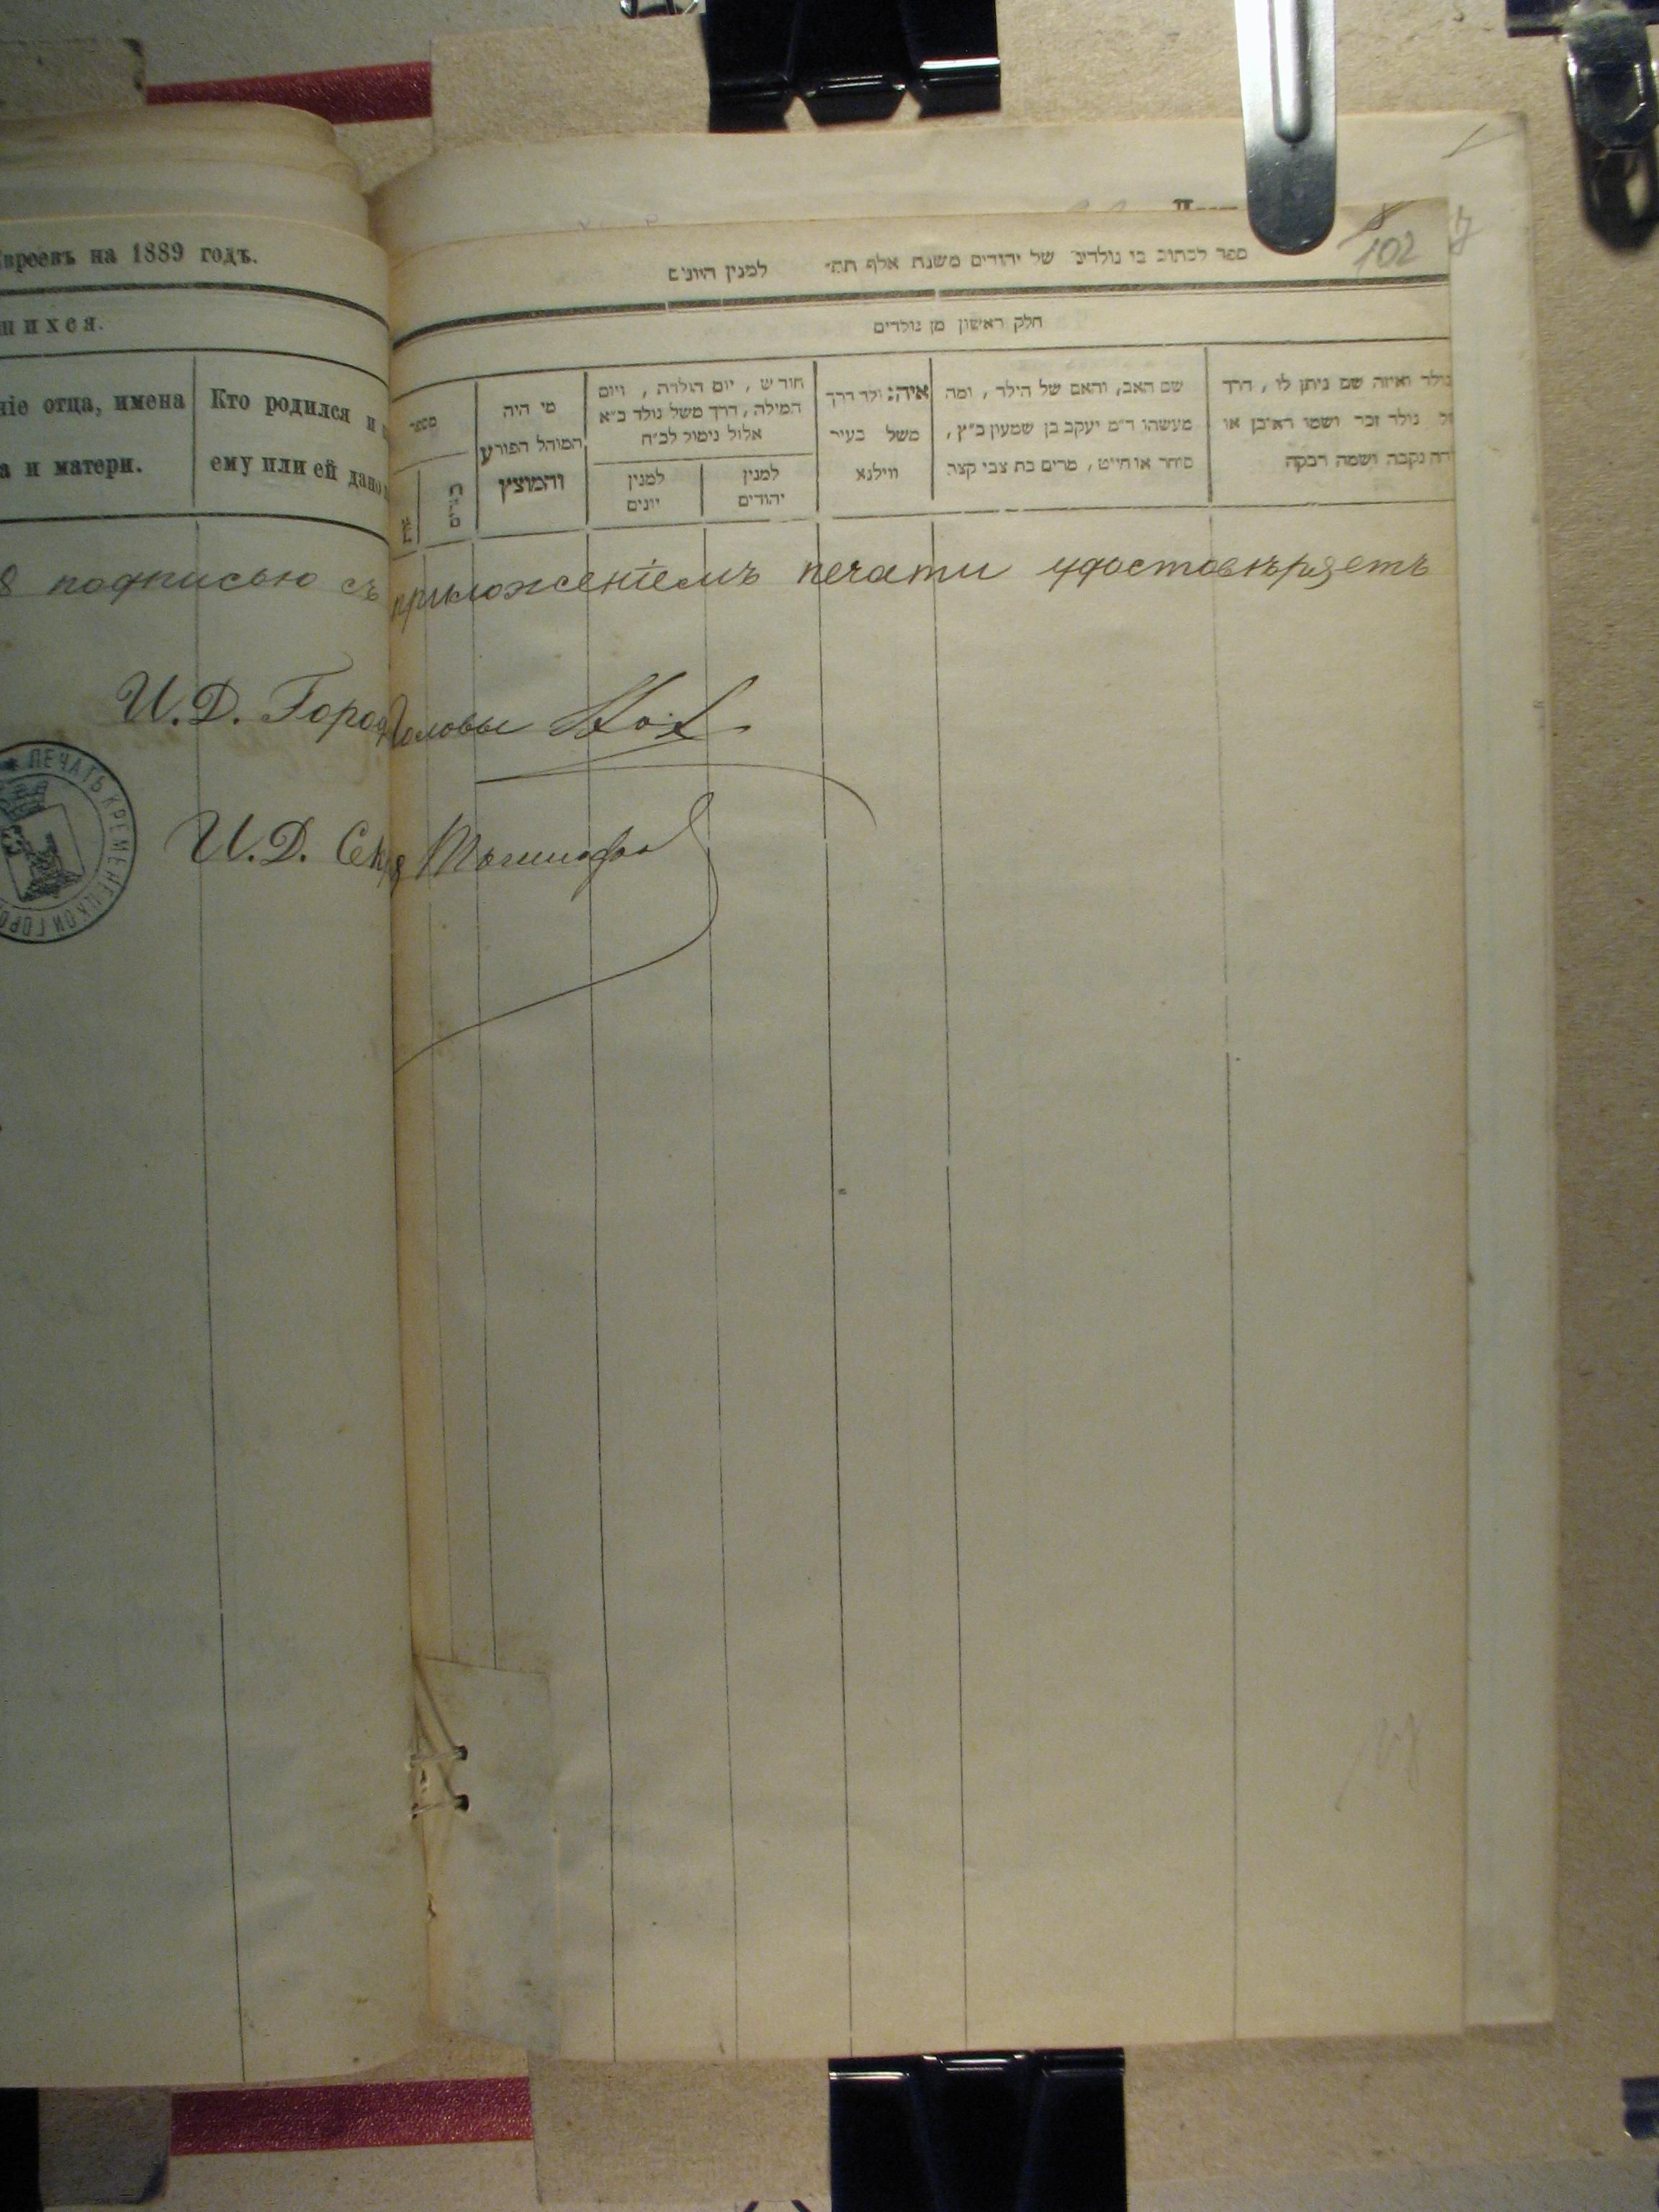 Евреевъ на 1889 годъ.
шихся.
ніе отца, имена
а и матери.
Кто родился и
ему или ей дано
ספר לכתוב בו נולדים של יהודים משנת אלף תת׳ למנין היונים
102
חלק ראשון מן נולדים
נולד ואיזה שם ניתן לו, דרך
נולד זכר ושמו ראובן או
נקבה ושמה רבקה
שם האב, והאם של הילד, ומה
מעשהו ד״מ יעקב בן שמעון כ״ץ,
סוחר או חייט, מרים בת צבי קצב
איה: ולד דרך
משל בעיר
ווילנא
חודש, יום הולדת, ויום
המילה, דרך משל נולד כ״א
אלול נימול לכ״ח
למנין
יהודים
למנין
יונים
מי היה
המוהל הפורע
והמוצץ
מספר
זכרים
подписью съ приложеніемъ печати удостовѣряетъ
И.Д. Город Головы
И.Д. Секр
ПЕЧАТЬ КРЕМЕНЕЦКОЙ ГОРО